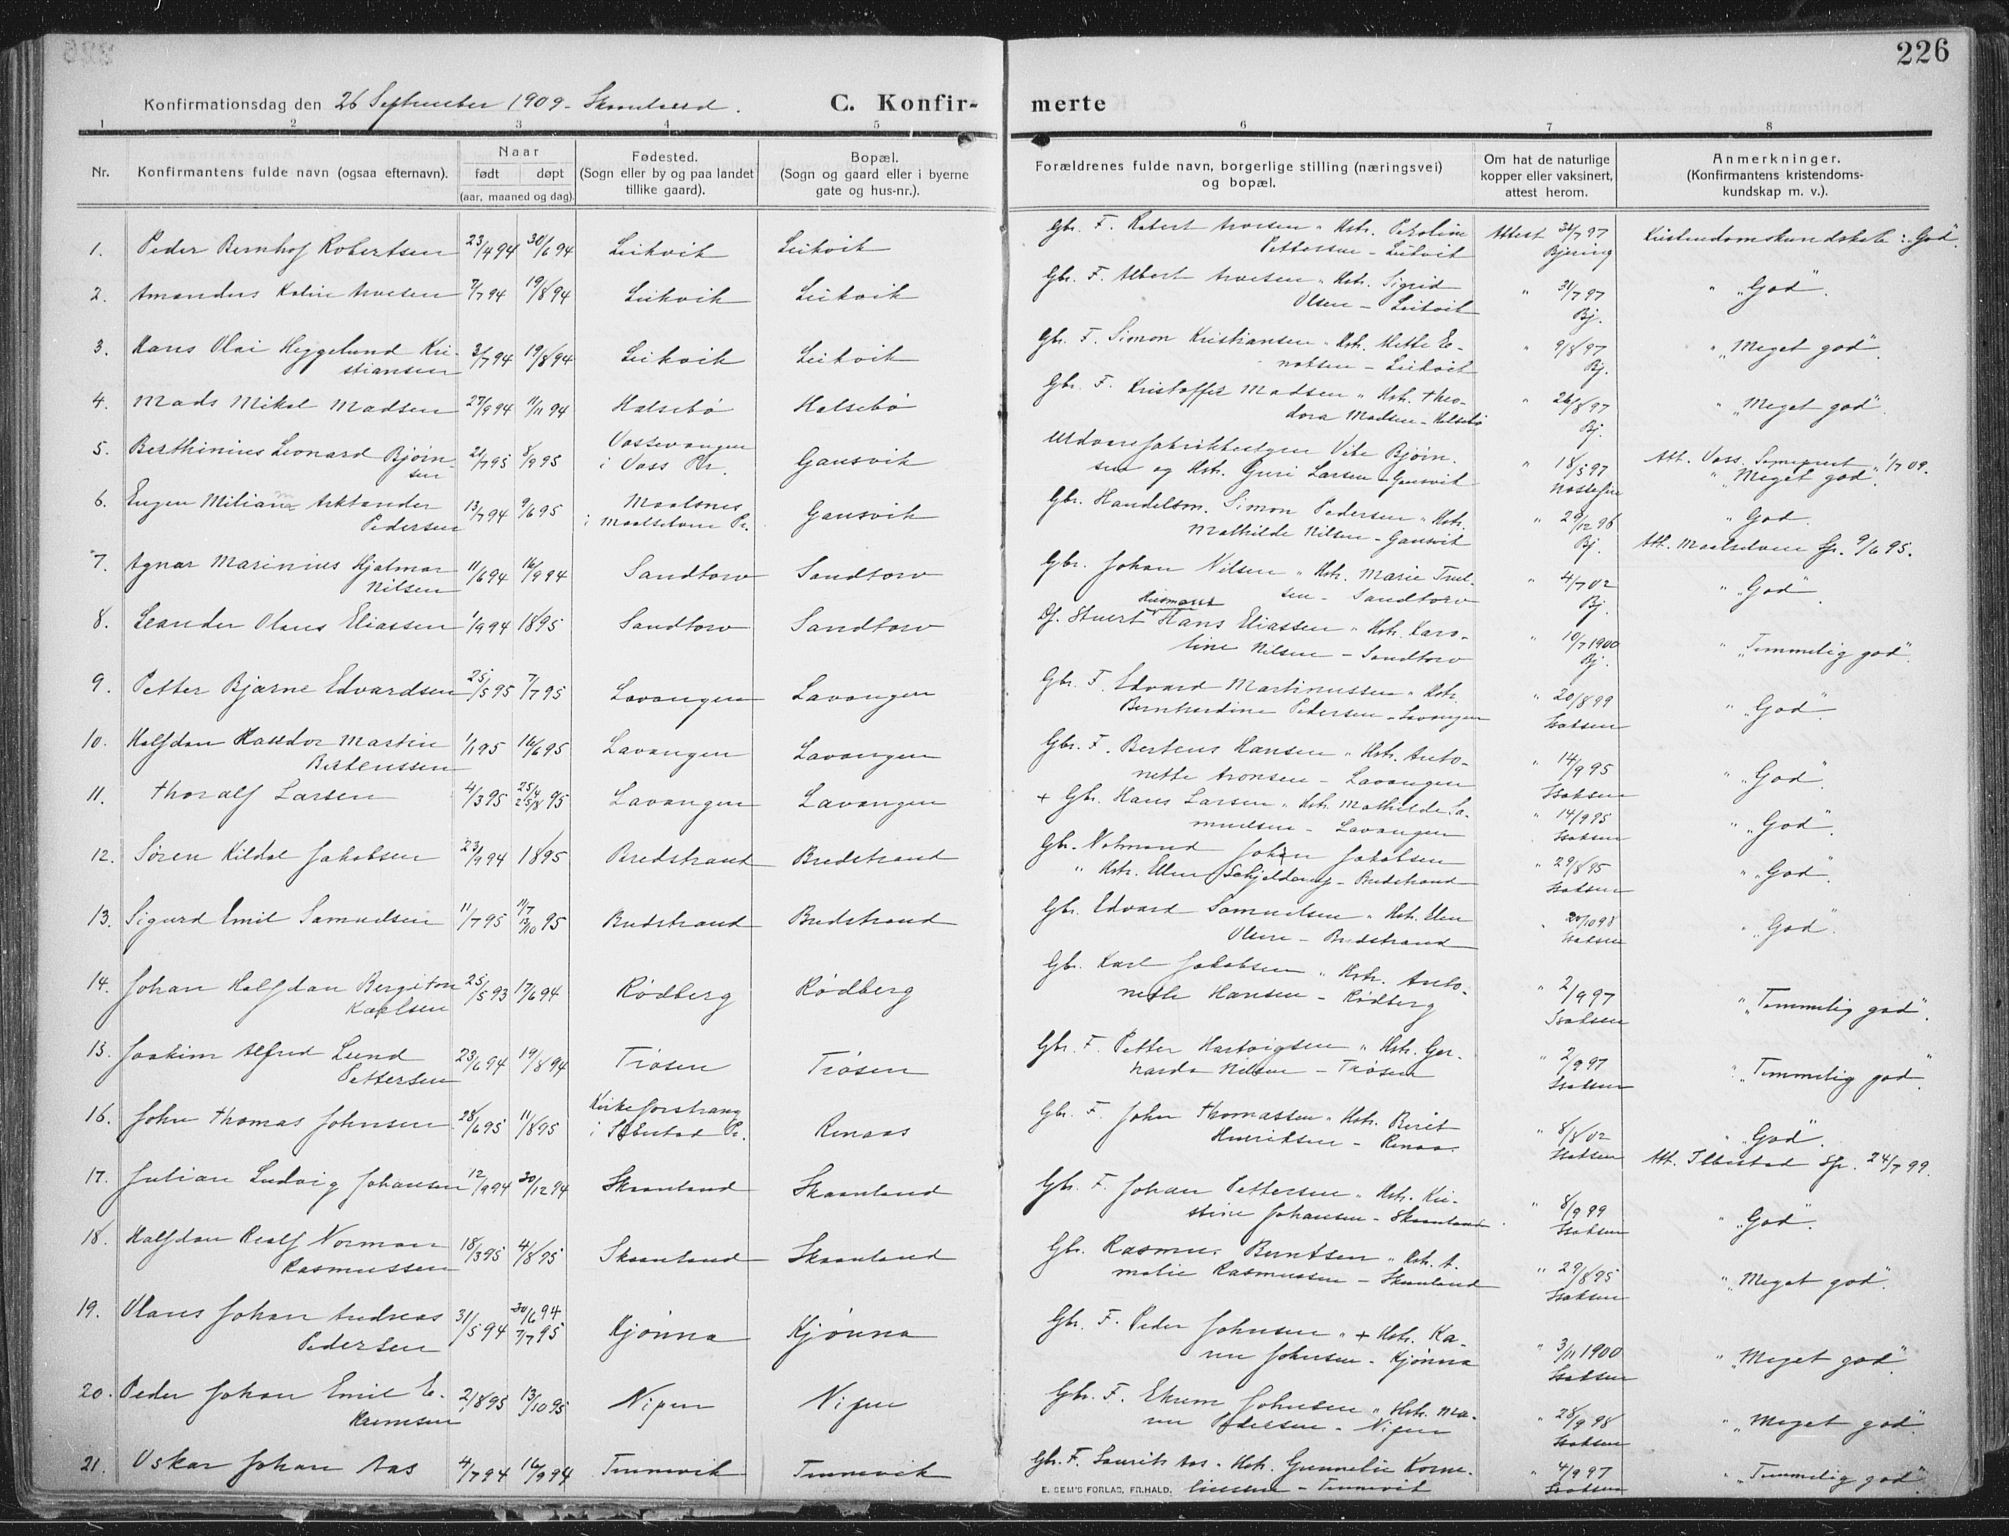 226
Konfirmationsdag den 26 September 1909 - Skaanland. C. Konfir- merte
1 2 3 4 5 6 7 8
Nr. Konfirmantens fulde navn (ogsaa efternavn). Naar født døpt (aar, maaned og dag). Fødested. (Sogn eller by og paa landet tillike gaard). Bopæl. (Sogn og gaard eller i byerne gate og hus-nr.). Forældrenes fulde navn, borgerlige stilling (næringsvei) og bopæl. Om hat de naturlige kopper eller vaksinert, attest herom. Anmerkninger. (Konfirmantens kristendoms- kundskap m. v.).
1. Peder Bernhof Robertsen 23/4 94 30/6 94 Leikvik Leikvik Gbr. F. Robert Arvesen " Hstr. Petroline
Pettersen - Leikvik Attest 31/7 97 Bjering Kristendomskundskab: "God".
2. Amandus Kolin Arvesen 7/7 94 19/8 94 Leikvik Leikvik Gbr. F. Albert Arvesen " Hstr. Sigrid
Olsen - Leikvik " 31/7 97 Bj. " "God".
3. Hans Olai Heggelund Kri-
stiansen 3/7 94 19/8 94 Leikvik Leikvik Gbr. F. Simon Kristiansen " Hstr. Mette E-
notsen - Leikvik " 9/8 97 Bj. " "Meget god".
4. Mads Mikal Madsen 27/9 94 11/11 94 Halsebø Halsebø Gbr. F. Kristoffer Madsen " Hstr. Theo-
dora Madsen - Halsebø " 26/8 97 Bj. " "Meget god".
5. Berthinius Leonard Bjøin-
sen 21/7 95 8/9 95 Vossevangen
i Voss Pr. Gausvik Uldvarefabrikbestyrer Vike Bjøin-
sen og Hstr. Guri Larsen - Gausvik " 18/5 97 Att. Voss Sogneprest 1/7 09.
" "Meget god".
6. Eugen Milian Arktander
Pedersen 13/7 94 9/6 95 Maalsnes
i Maalselven Pr. Gausvik Gbr. Handelsm. Simon Pedersen " Hstr.
Mathilde Nilsen - Gausvik " 29/12 96 Bj. " "God".
Att. Maalselven Sp. 9/6 95.
7. Agnar Marinius Hjalmar
Nilsen 11/6 94 16/9 94 Sandtorv Sandtorv Gbr. Johan Nilsen " Hstr. Marie Truel-
sen - Sandtorv " 4/7 02 Bj. " "God".
8. Leander Olaus Eliassen 1/9 94 18/6 95 Sandtorv Sandtorv Husmand
Hans Eliassen " Hstr. Karo-
line Nilsen - Sandtorv " 10/7 1900 Bj. " "Temmelig god".
9. Petter Bjarne Edvardsen 25/5 95 7/7 95 Lavangen Lavangen Gbr. F. Edvard Martinussen " Hstr.
Bernhardine Pedersen - Lavangen " 20/8 99 Isaksen " "God".
10. Halfdan Halldor Martin
Bertenssen 1/1 95 16/6 95 Lavangen Lavangen Gbr. F. Bertens Hansen " Hstr. Anto-
nette Aronsen - Lavangen " 14/9 95 Isaksen " "God".
11. Thoralf Larsen 4/3 95 25/4 25/8 95 Lavangen Lavangen + Gbr. Hans Larsen " Hstr. Mathilde Sa-
muelsen - Lavangen " 14/9 95 Isaksen " "God".
12. Søren Kildal Jakobsen 23/9 94 18/6 95 Bredstrand Bredstrand Gbr. Notmand Johan Jakobsen
" Hstr. Ellen Schjelderup - Bredstrand " 29/8 95 Isaksen " "God".
13. Sigurd Emil Samuelsen 11/7 95 14/7 13/10 95 Bredstrand Bredstrand Gbr. Edvard Samuelsen " Hstr. Elen
Olsen - Bredstrand " 20/10 98 Isaksen " "God".
14. Johan Halfdan Bergiton
Karlsen 25/5 93 17/6 94 Rødberg Rødberg Gbr. Karl Jakobsen " Hstr. Anto-
nette Hansen - Rødberg " 2/9 97 Isaksen " "Temmelig god".
15. Joakim Alfred Lund
Pettersen 23/6 94 19/8 94 Trøsen Trøsen Gbr. F. Petter Hartvigsen " Hstr. Ger-
harda Nilsen - Trøsen " 2/9 97 Isaksen " "Temmelig god".
16. John Thomas Johnsen 28/6 95 11/8 95 i Ibestad Pr. Renaas Gbr. F. John Thomassen " Hstr. Berit
Henriksen - Renaas. " 8/8 02 Isaksen " "God".
Att. Ibestad Sp. 24/7 99.
17. Julian Ludvig Johansen 12/9 94 30/12 94 Skaanland Skaanland Gbr. F. Johan Pettersen " Hstr. Kri-
stine Johansen - Skaanland " 8/9 99 Isaksen " "God".
18. Halfdan Realf Norman
Rasmussen 18/3 95 4/8 95 Skaanland Skaanland Gbr. Rasmus Berntsen " Hstr. A-
malie Rasmussen - Skaanland " 29/8 95 Isaksen " "Meget god".
19. Olaus Johan Andreas
Pedersen 31/5 94 30/6 94 7/7 95 Kjønna Kjønna Gbr. F. Peder Johnsen " + Hstr. Ka-
ren Johnsen - Kjønna " 3/11 1900 Isaksen " "Meget god".
20. Peder Johan Emil E-
kremsen 2/8 95 13/10 95 Nipen Nipen Gbr. F. Ekrem Johnsen " Hstr. Ma-
ren Pedersen - Nipen " 28/9 98 Isaksen " "Meget god".
21. Oskar Johan Aas 4/7 94 16/9 94 Tennevik Tennevik Gbr. F. Laurits Aas " Hstr. Gunnelie Korne-
liussen - Tennevik " 4/9 97 Isaksen " "Temmelig god".
E. SEM'S FORLAG, FR.HALD.